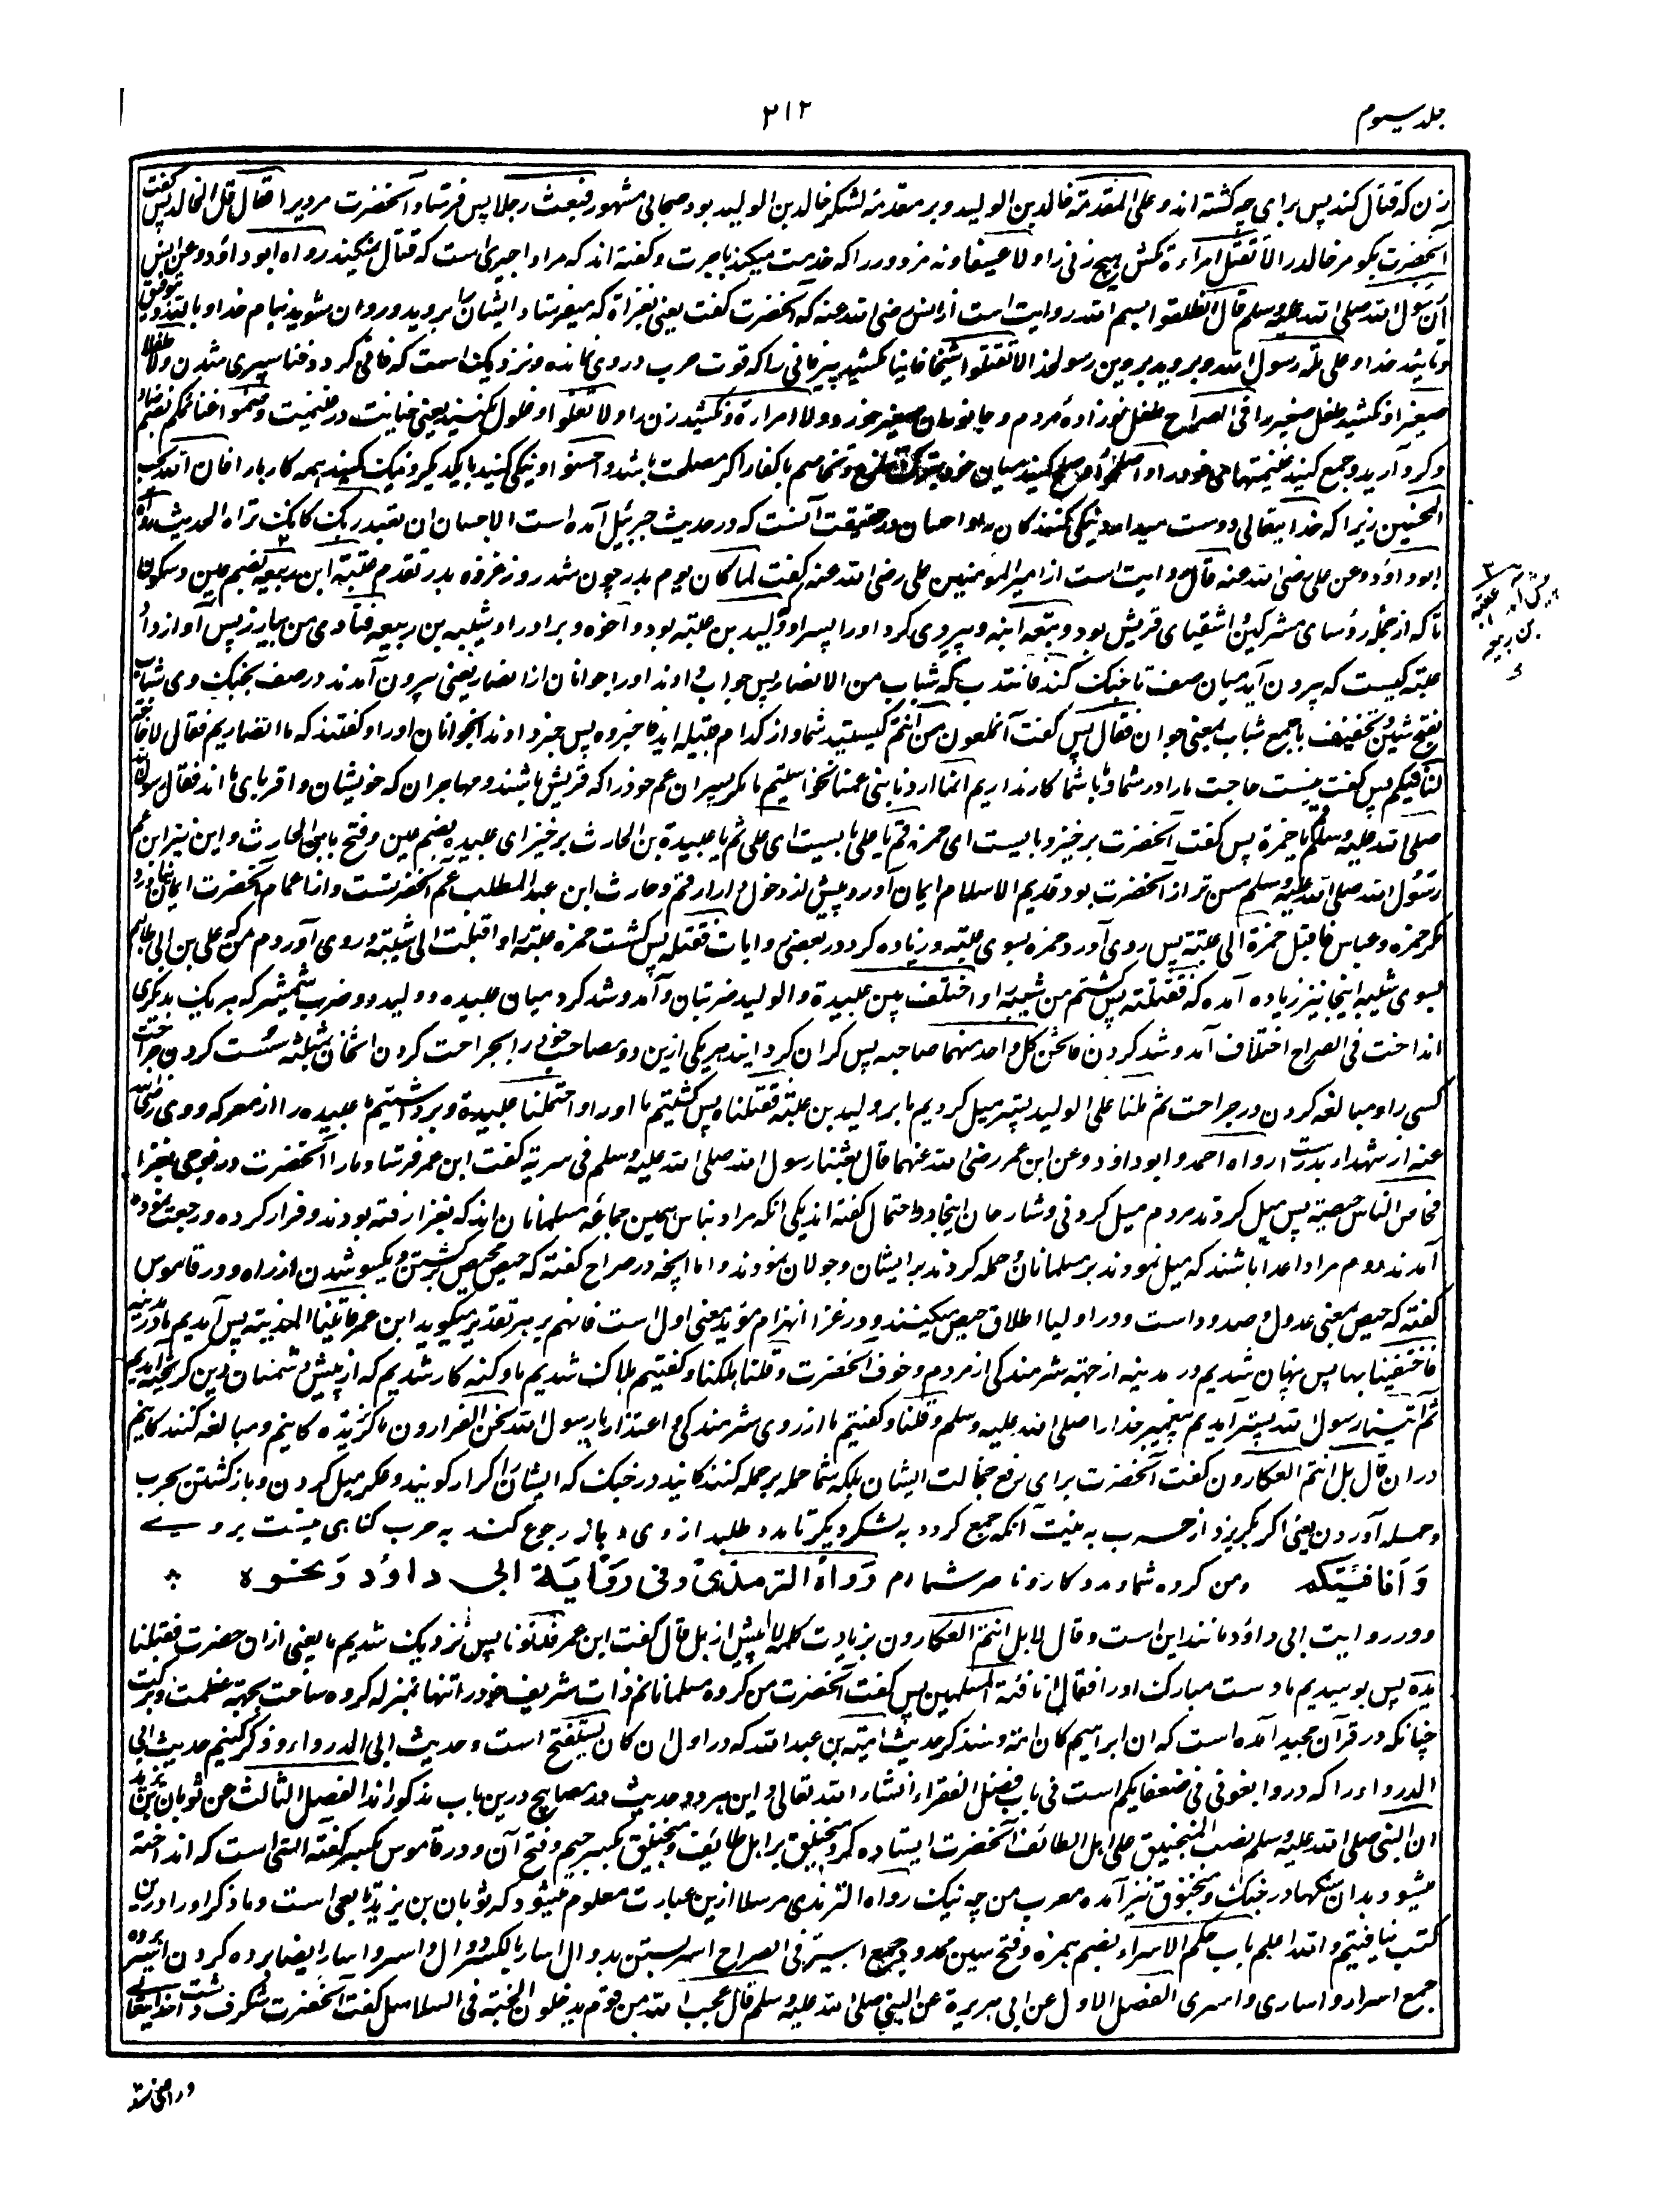 جلد سیوم
۳۱۲
زن که قتال کند پس برای چه کشته اند وعلی المقدمة خالد بن الولید و بر مقدمهٔ لشکر خالد بن الولید بود صحابی مشهور فبعث رجلا پس فرستاد آنحضرت مردیرا فقال قل لخالد پس گفت
آنحضرت بگو مر خالد را لا تقتل امراءة مکش هیچ زنی را ولا عسیفا و نه مزدور را که خدمت میکند باجرت و گفته اند که مراد اجیری است که قتال نمیکند رواه ابو داؤد وعن انس
ان رسول الله صلی الله علیه وسلم قال انطلقوا بسم الله روایت است از انس رضی الله عنه که آنحضرت گفت یعنی بغزاة که میفرستاد ایشان را بروید و روان شوید بنام خدا وبالله وبتوفیق
وتائید خدا وعلی ملة رسول الله و بروید بر دین رسول خدا لا تقتلوا شیخا فانیا مکشید پیر فانی را که قوت حرب در وی نمانده و نزدیک است که فانی گردد و فنا سپری شدن ولا طفلا
صغیرا و مکشید طفل صغیر را فی الصراح طفل نوزادهٔ مردم و جانوران صغیر خورد ولا امراءة و مکشید زن را ولا تغلوا و غلول مکنید یعنی خیانت در غنیمت وضموا غنائمکم بضم ضاد
و گرد آرید و جمع کنید غنیمتهای خود را واصلحوا و صلح کنید میان خود بترک تنازع و تخاصم با کفار اگر مصلحت باشد واحسنوا و نیکی کنید با یکدیگر و نیک کنید همه کار بار فان الله یحب
المحسنین زیرا که خدایتعالی دوست میدارد نیکی کنندگان را و احسان در حقیقت آنست که در حدیث جبرئیل آمده است الاحسان ان تعبد ربک کانک تراه الحدیث رواه
ابو داؤد وعن علی رضی الله عنه قال روایت است از امیر المؤمنین علی رضی الله عنه گفت لما کان یوم بدر چون شد روز غزوه بدر تقدم عتبة ابن ربیعه بضم عین وسکون
تا که از جملهٔ رؤسای مشرکین و اشقیای قریش بود وتبعه ابنه و پیروی کرد او را پسر او ولید بن عتبه بود واخوه و برادر او شیبه بن ربیعه فنادی من یبارز پس آواز داد
عتبه کیست که بیرون آید میان صف تا جنگ کند فانتدب له شباب من الانصار پس جواب دادند او را جوانان از انصار یعنی بیرون آمدند در صف بجنگ وی شباب
بفتح شین و تخفیف با جمع شاب بمعنی جوان فقال پس گفت آن ملعون من انتم کیستید شما و از کدام قبیله اید فاخبروه پس خبر دادند آنجوانان او را و گفتند که ما انصاریم فقال لا حاجة
لنا فیکم پس گفت نیست حاجت ما را در شما و با شما کار نداریم انما اردنا بنی عمنا نخواستیم ما مگر پسران عم خود را که قریش باشند و مهاجران که خویشان و اقربای ما اند فقال رسول الله
صلی الله علیه وسلم قم یا حمزة پس گفت آنحضرت برخیز و بایست ای حمزه قم یا علی بایست ای علی قم یا عبیدة بن الحارث برخیز ای عبیده بضم عین و فتح با بن الحارث و این نیز ابن عم
رسول الله صلی الله علیه وسلم مسن تر از آنحضرت بود قدیم الاسلام ایمان آورد پیش از دخول دار ارقم وحارث ابن عبد المطلب عم آنحضرتست و از اعمام آنحضرت ایمان نیاورد
مگر حمزه و عباس فاقبل حمزة الی عتبة پس روی آورد حمزه بسوی عتبه و زیاده کرد در بعضی روایات فقتله پس کشت حمزه عتبه را واقبلت الی شیبة و روی آوردم من که علی بن ابی طالبم
بسوی شیبه اینجا نیز زیاده آمده که فقتلته پس کشتم من شیبه را واختلف بین عبیدة والولید ضربتان و آمد و شد کرد میان عبیده و ولید دو ضرب شمشیر که هر یک بدیگری
انداخت فی الصراح اختلاف آمد و شد کردن فاثخن کل واحد منهما صاحبه پس گران کرد ایند هر یکی ازین دو مصاحب خود را بجراحت کردن اثخان بمثلثه سست کردن جراحت
کسی را و مبالغه کردن در جراحت ثم ملنا علی الولید پستر میل کردیم ما بر ولید بن عتبه فقتلناه پس کشتیم ما او را واحتملنا عبیدة و برداشتیم ما عبیده را از معرکه و وی رضی الله
عنه از شهداء بدرست رواه احمد وابو داؤد وعن ابن عمر رضی الله عنهما قال بعثنا رسول الله صلی الله علیه وسلم فی سریة گفت ابن عمر فرستاد ما را آنحضرت در فوجی بغزا
فحاص الناس حیصة پس میل کردند مردم میل کردنی و شارحان اینجا دو احتمال گفته اند یکی آنکه مراد بناس همین جماعهٔ مسلمانان اند که بغزا رفته بودند و فرار کرده و رجعت نموده
آمدند دوم مراد اعدا باشند که میل نمودند بر مسلمانان و حمله کردند بر ایشان و جولان نمودند و اما آنچه در صراح گفته که حیص محیص برگشتن و یکسو شدن از راه و در قاموس
گفته که حیص بمعنی عدول و صدود است و در اولیا اطلاق حیص میکنند و در غزا انهزام مؤید معنی اول است فافهم بر هر تقدیر میگوید ابن عمر فاتینا المدینة پس آمدیم ما در مدینه
فاختفینا بها پس پنهان شدیم در مدینه از جهة شرمندگی از مردم و خوف آنحضرت وقلنا هلکنا و گفتیم هلاک شدیم ما و گنه کار شدیم که از پیش دشمنان دین گریخته آمدیم
ثم اتینا رسول الله پستر آمدیم پیغمبر خدا را صلی الله علیه وسلم وقلنا و گفتیم ما از روی شرمندگی و اعتذار یا رسول الله نحن الفرارون ما گریزنده گانیم و مبالغه کنندگانیم
دران قال بل انتم العکارون گفت آنحضرت برای رفع خجالت ایشان بلکه شما حمله بر حمله کنندگانید در جنگ که ایشان را کرار گویند و عکر میل کردن و باز گشتن بحرب
و حمله آوردن یعنی اگر بگریزد از حرب به نیت آنکه جمع گردد به لشکر دیگر تا مدد طلبد از وی و باز رجوع کند به حرب گناهی نیست برو
وَاَنَا فِئَتُکم و من گروه شما و مددگار و ناصر شما ام رَوَاهُ الترمذیُّ وفی رِوَایَة ابی داؤد وَنحوه
و در روایت ابی داؤد مانند این است وقال لا بل انتم العکارون بزیادت کلمهٔ لا پیش از بل قال گفت ابن عمر فدنونا پس نزدیک شدیم ما یعنی ازان حضرت فقبلنا
یده پس بوسیدیم ما دست مبارک او را فقال انا فئة المسلمین پس گفت آنحضرت من گروه مسلمانانم ذات شریف خود را تنها بمنزله گروه ساخت بجهة عظمت و برکت
چنانکه در قرآن مجید آمده است که ان ابراهیم کان امة وسنذکر حدیث امیة بن عبد الله که در اول ان کان یستفتح است وحدیث ابی الدرداء و ذکر کنیم حدیث ابی
الدرداء را که درو ابغونی فی ضعفایکم است فی باب فضل الفقراء انشاء الله تعالی و این هر دو حدیث در مصابیح درین باب مذکور اند الفصل الثالث عن ثوبان بن یزید
ان النبی صلی الله علیه وسلم نصب المنجنیق علی اهل الطائف آنحضرت ایستاده کرد منجنیق بر اهل طایف و منجنیق بکسر جیم و فتح آن و در قاموس بکسر گفته آلتی است که انداخته
میشود بدان سنگها در جنگ و منجنوق نیز آمده معرب من چه نیک رواه الترمذی مرسلا ازین عبارت معلوم میشود که ثوبان بن یزید تابعی است و ما ذکر او را درین
کتب نیافتیم والله اعلم باب حکم الاسراء بضم همزه و فتح سین ممدود جمع اسیر فی الصراح اسر بستن بدوال اسار بالکسر دوال و اسر و اسار ایضا برده کردن اسیر برده
جمع اسراء و اساری و اسری الفصل الاول عن ابی هریرة عن النبی صلی الله علیه وسلم قال عجب الله من قوم یدخلون الجنة فی السلاسل گفت آنحضرت شگرف داشت خدایتعالی